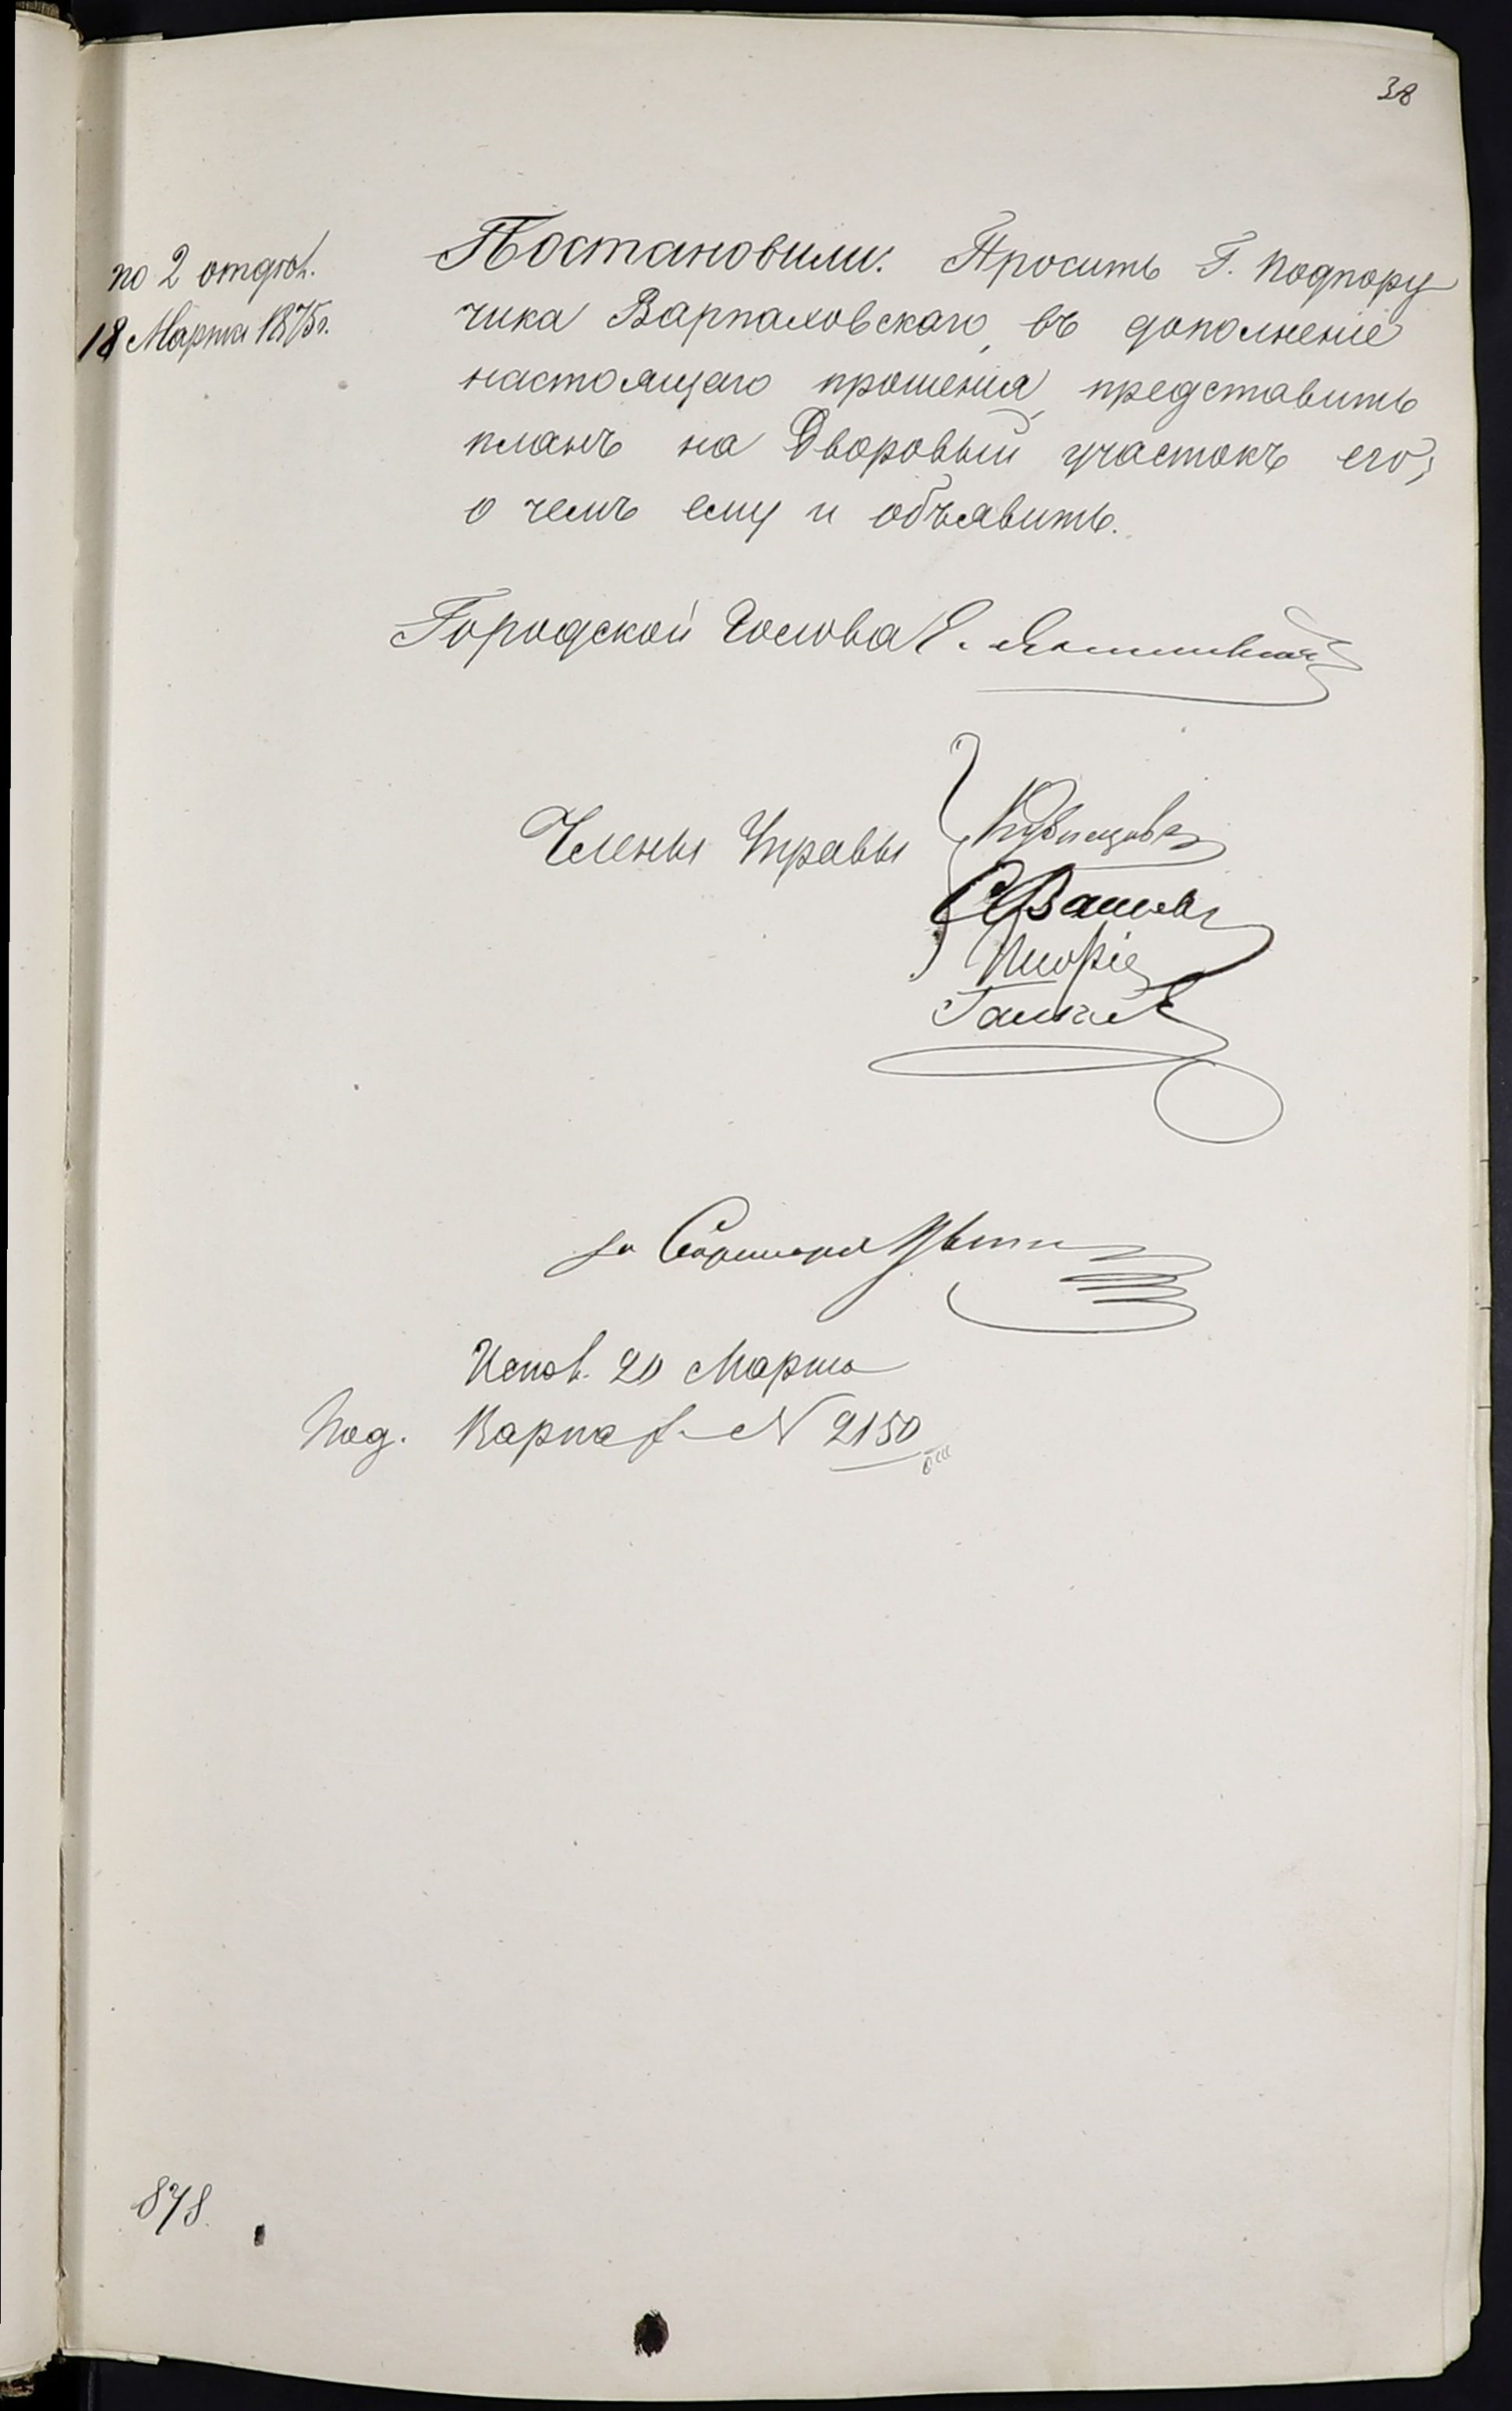 38
по 2 отдѣл.
18 Марта 1875 г.
Постановили: Просить Г. Подпору
чика Варпаховскаго, въ дополненіе
настоящаго прошенія, представить
планъ на Дворовый участокъ его,
о чемъ ему и объявить.
Городской Голова
Члены Управы
за Секретаря
Испол. 20 Марта
Под. Варпах. N 2150
878.